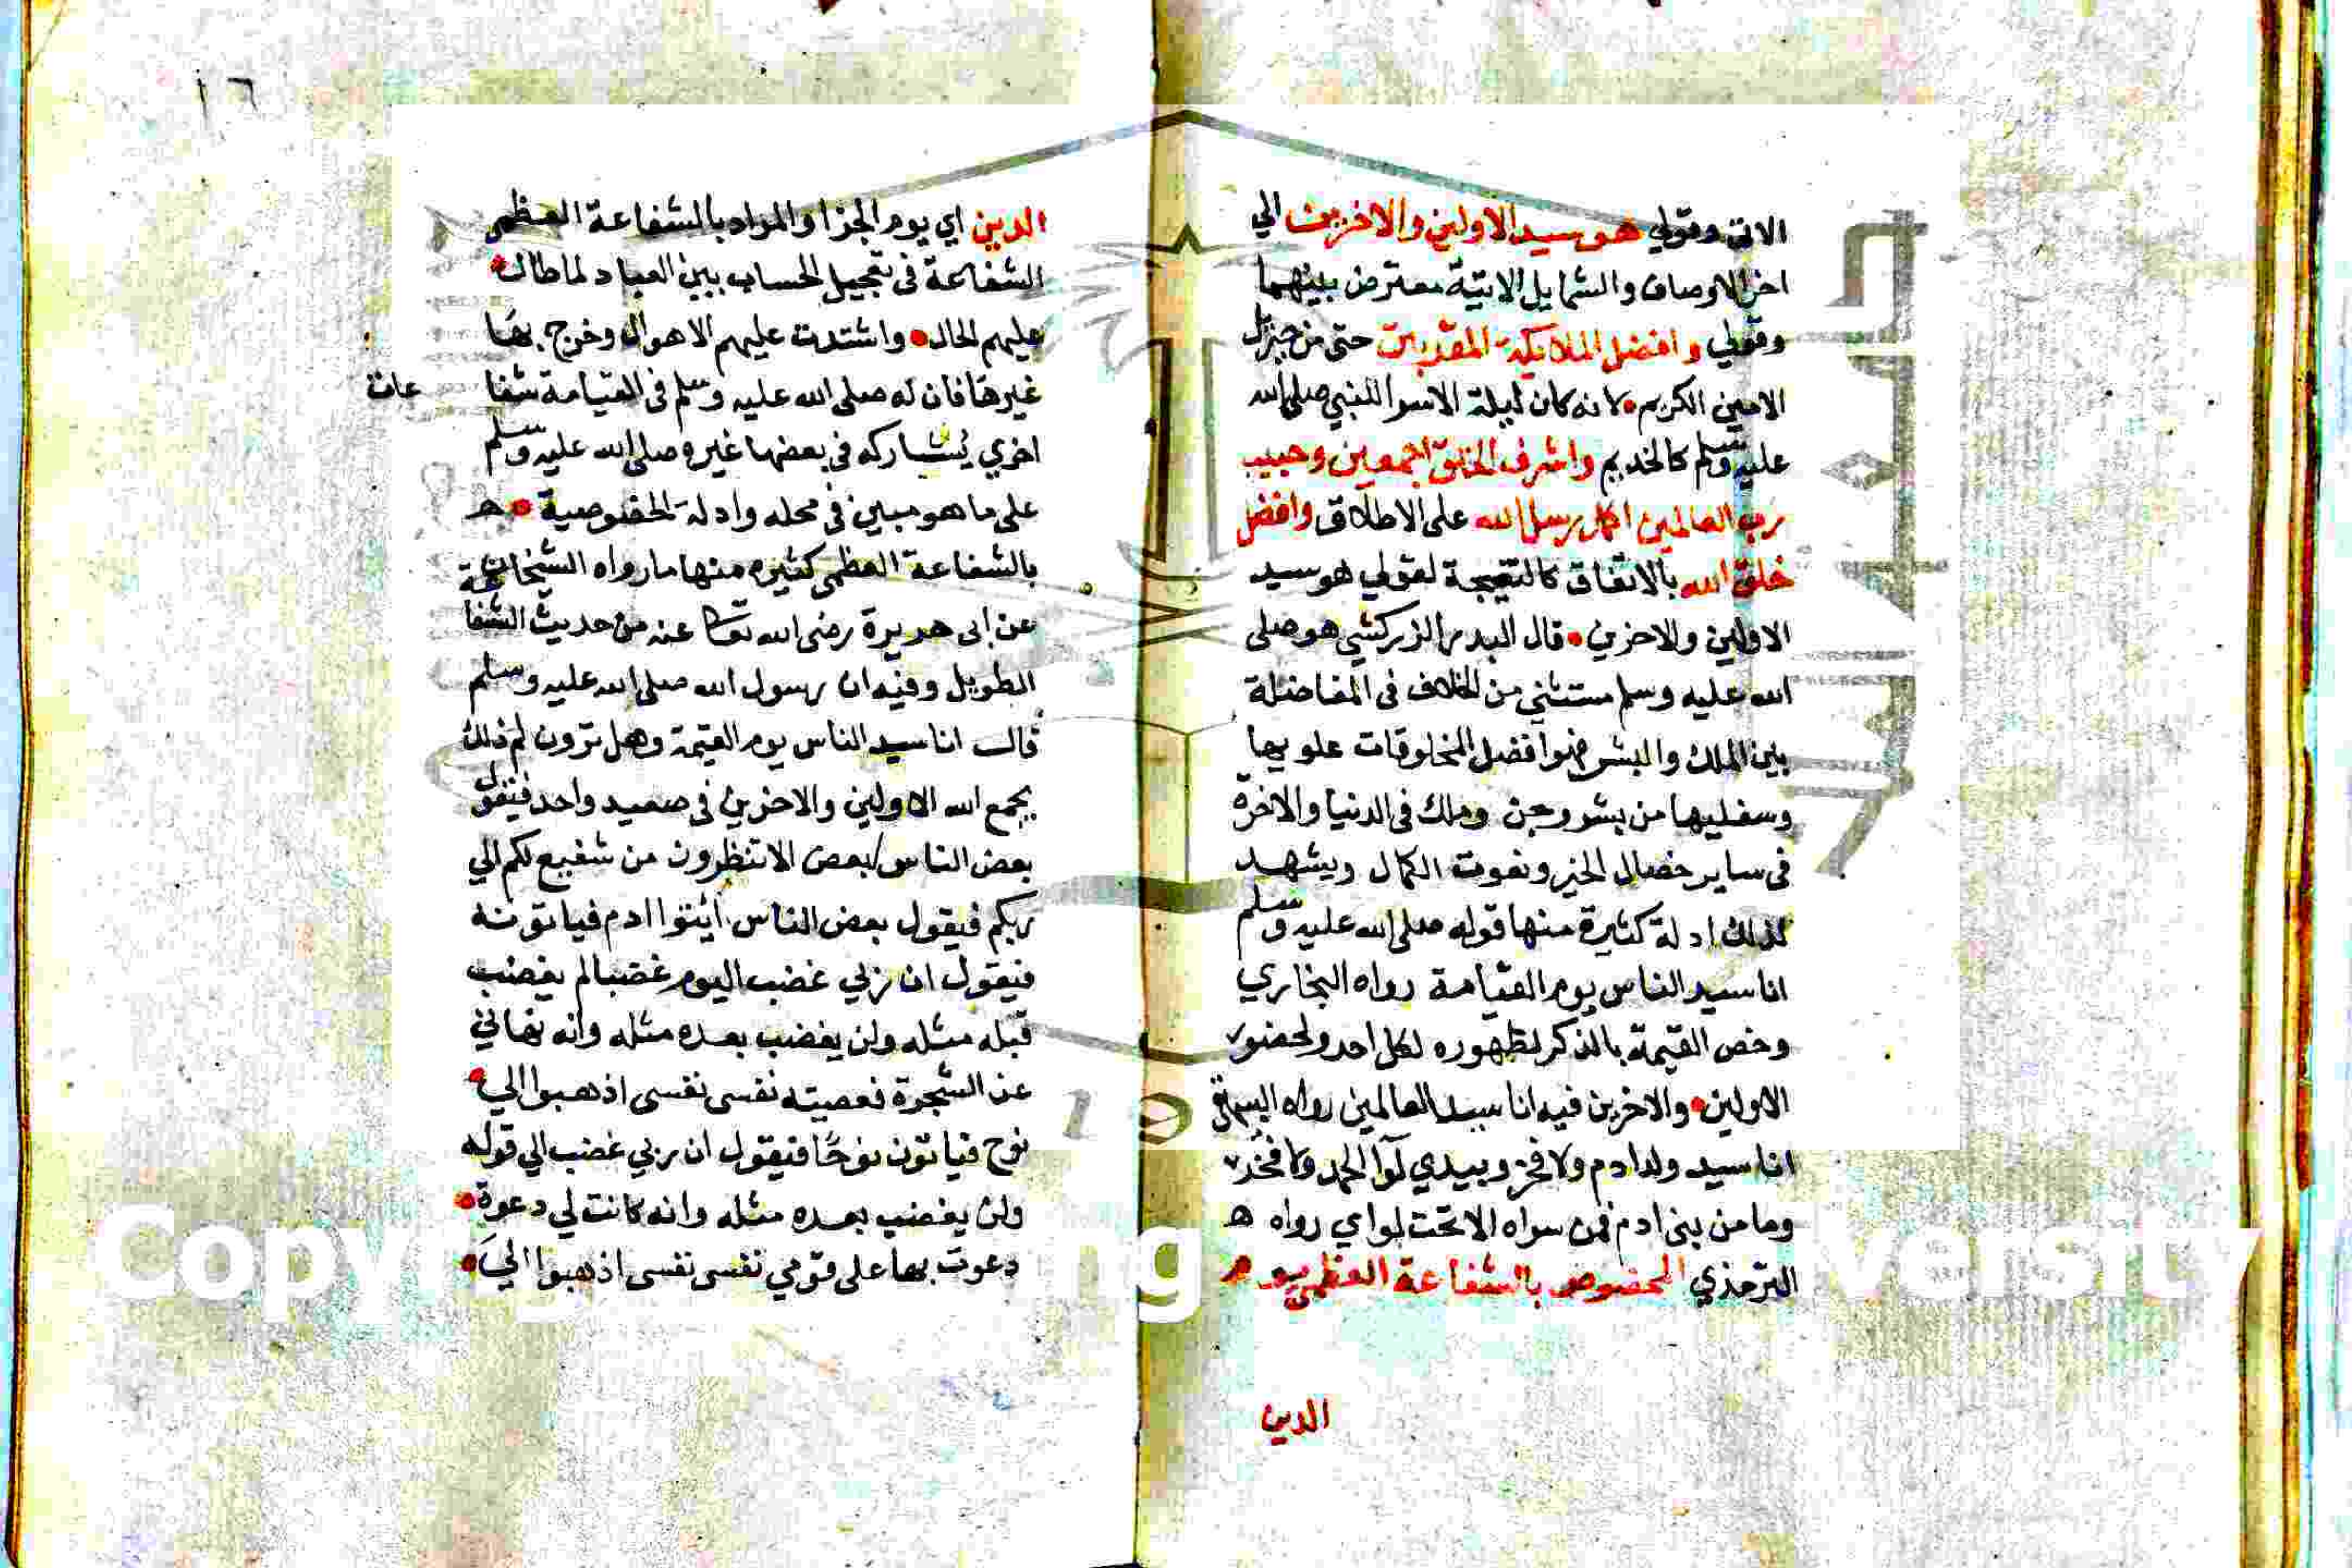 الاتي وقولي هو سيد الاولين والاخرين الي
اخر الاوصاف والشمايل الاتية معترض بينهما
وقولي وافضل الملايكة المقربين حتى من جبريل
الامين الكريم لانه كان ليلة الاسرا للنبي صلى الله
عليه وسلم كالخديم واشرف الخلق اجمعين وحبيب
رب العالمين اكمل رسل الله على الاطلاق وافضل
خلق الله بالاتفاق كالنتيجة لقولي هو سيد
الاولين والاخرين قال البدر الزركشي هو صلى
الله عليه وسلم مستثني من الخلاف في المفاضلة
بين الملك والبشر فهو افضل المخلوقات علويها
وسفليها من بشر وجن وملك في الدنيا والاخرة
في ساير خصال الخير ونعوت الكمال ويشهد
لذلك ادلة كثيرة منها قوله صلى الله عليه وسلم
انا سيد الناس يوم القيامة رواه البخاري
وخص القيمة بالذكر لظهوره لكل احد ولحضور
الاولين والاخرين فيه انا سيد العالمين رواه البيهقي
انا سيد ولد ادم ولا فخر وبيدي لوآ الحمد ولا فخر
وما من بني ادم فمن سواه الا تحت لواي رواه ه
الترمذي المخصوص بالشفاعة العظمى يوم
الدين
١٦
الدين اي يوم الجزا والمراد بالشفاعة العظمى
الشفاعة في تعجيل الحساب بين العباد لما طال
عليهم الحال واشتدت عليهم الاهوال وخرج بها
غيرها فان له صلى الله عليه وسلم في القيامة شفا عات
اخري يشاركه في بعضها غيره صلى الله عليه وسلم
على ما هو مبين في محله وادلة الخصوصية
بالشفاعة العظمى كثيره منها ما رواه الشيخان
عن ابى هريرة رضى الله تعالى عنه من حديث الشفا عة
الطويل وفيه ان رسول الله صلى الله عليه وسلم
قال انا سيد الناس يوم القيمة وهل ترون لم ذلك
يجمع الله الاولين والاخرين في صعيد واحد فيقول
بعض الناس لبعض الا تنظرون من شفيع لكم الي
ربكم فيقول بعض الناس ائتوا ادم فياتونه
فيقول ان ربي غضب اليوم غضبا لم يغضب
قبله مثله ولن يغضب بعده مثله وانه نهاني
عن الشجرة فعصيته نفسى نفسى اذهبوا الي
نوح فياتون نوحًا فيقول ان ربي غضب الي قوله
ولن يغضب بعده مثله وانه كانت لي دعوة
دعوت بها على قومي نفسى نفسى اذهبوا الي